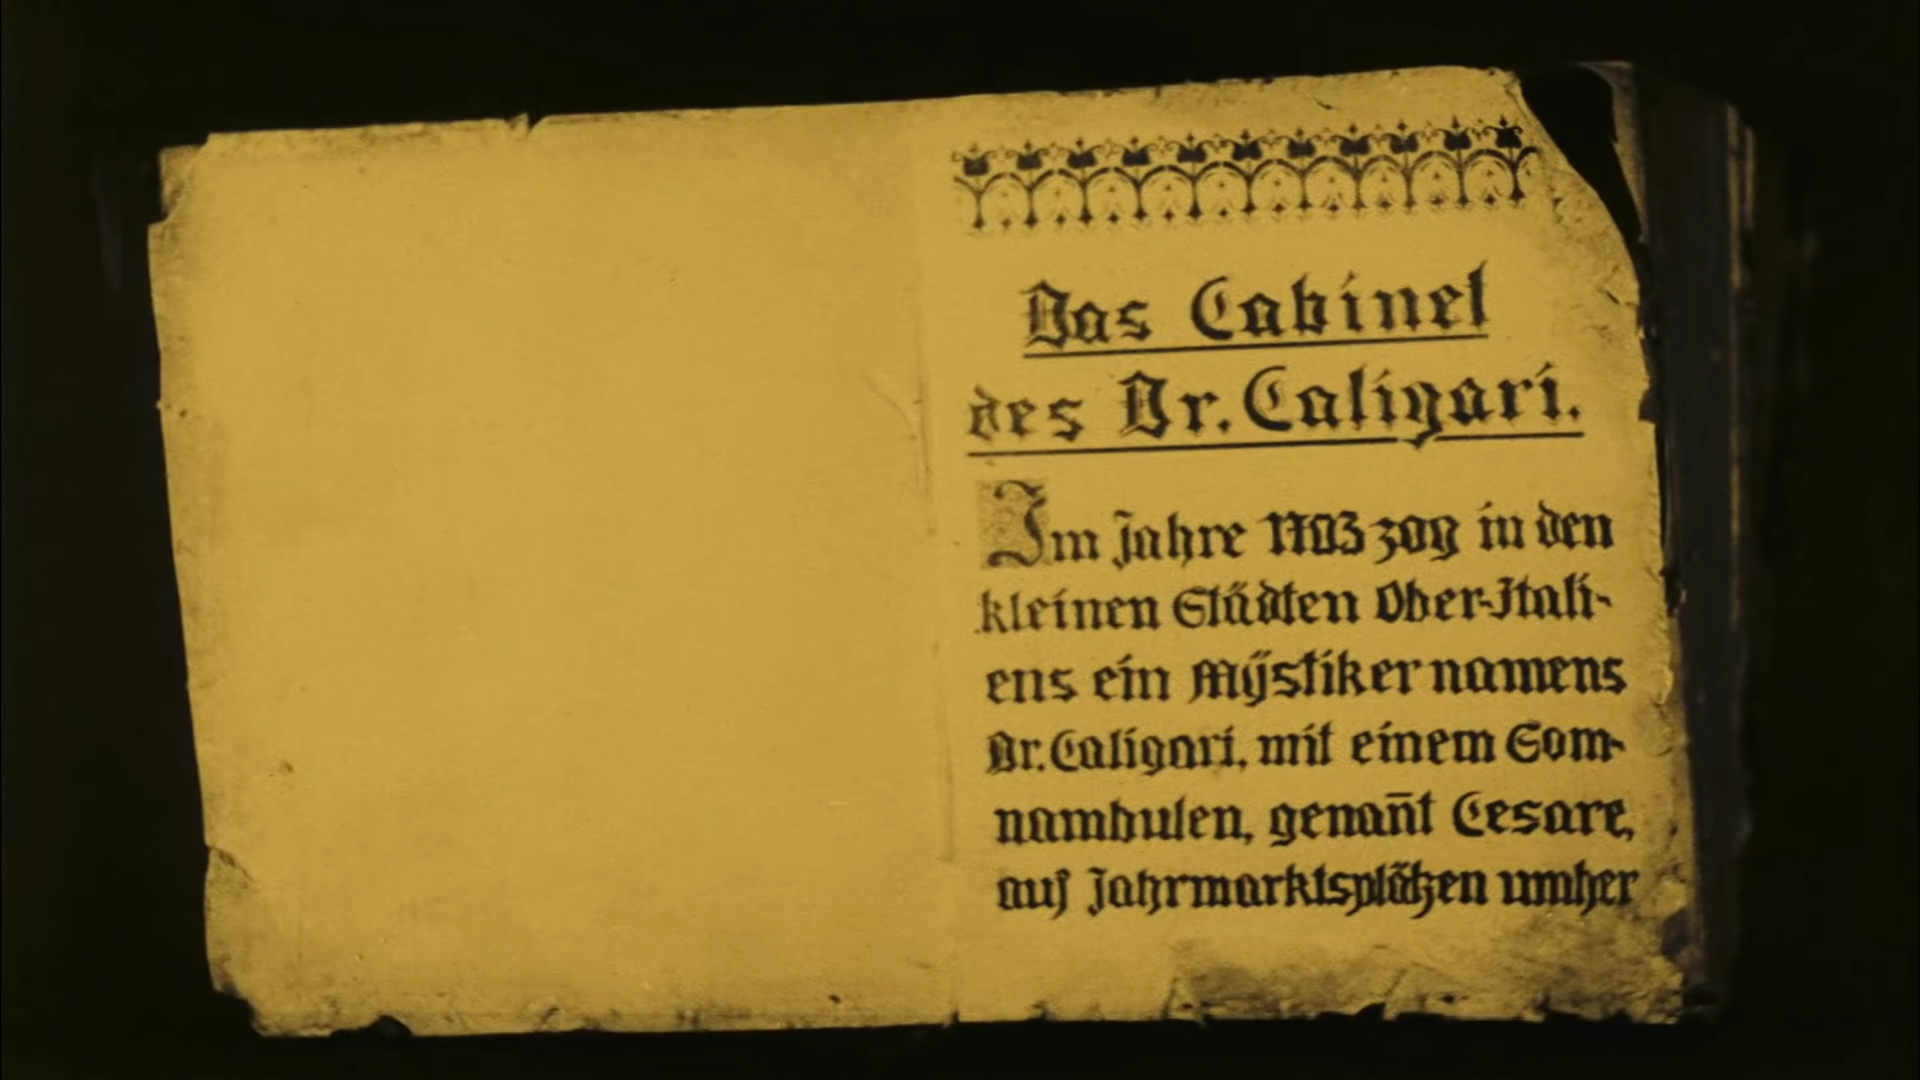 Das Cabinet
des Dr. Caligari.
Im Jahre 1703 zog in den
kleinen Städten Ober-Itali-
ens ein Mÿstiker namens
Dr. Caligari, mit einem Som-
nambulen, genan̄t Cesare,
auf Jahrmarktsplätzen umher